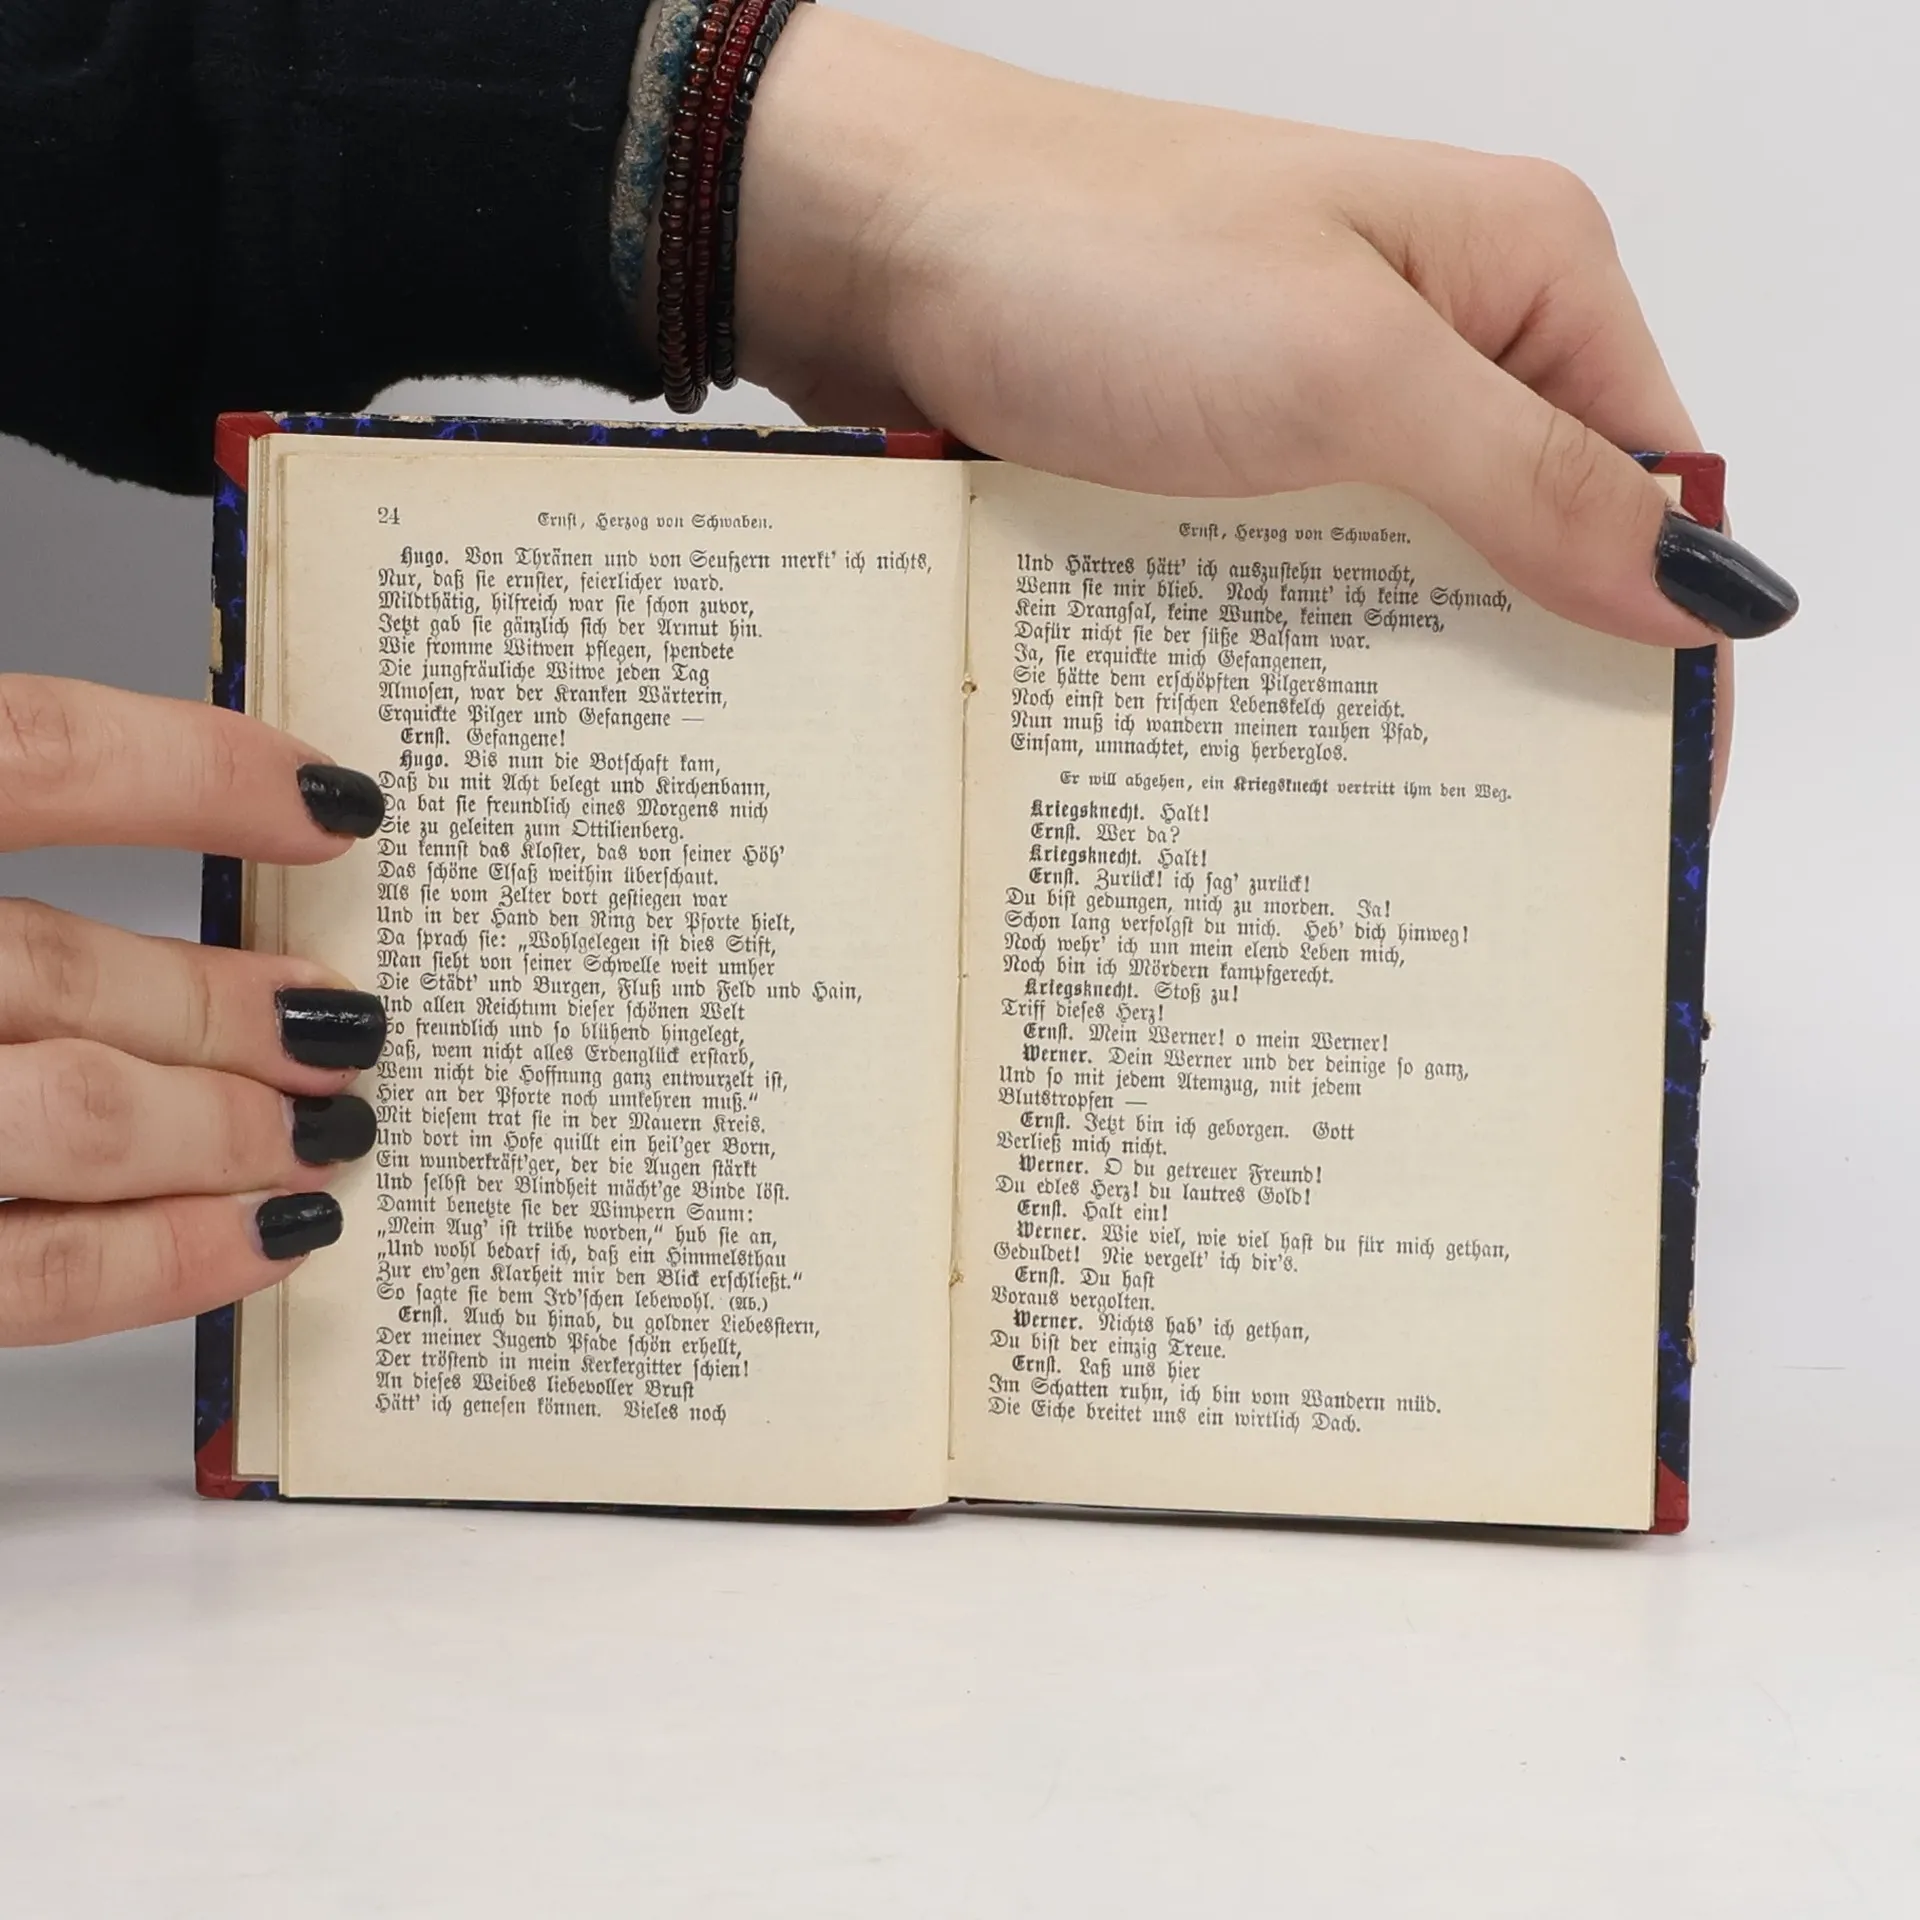 24
Ernst, Herzog von Schwaben.
Hugo. Von Thränen und von Seufzern merkt' ich nichts,
Nur, daß sie ernster, feierlicher ward.
Mildthätig, hilfreich war sie schon zuvor,
Jetzt gab sie gänzlich sich der Armut hin.
Wie fromme Witwen pflegen, spendete
Die jungfräuliche Witwe jeden Tag
Almosen, war der Kranken Wärterin,
Erquickte Pilger und Gefangene —
Ernst. Gefangene!
Hugo. Bis nun die Botschaft kam,
Daß du mit Acht belegt und Kirchenbann,
Da bat sie freundlich eines Morgens mich
Sie zu geleiten zum Ottilienberg.
Du kennst das Kloster, das von seiner Höh'
Das schöne Elsaß weithin überschaut.
Als sie vom Zelter dort gestiegen war
Und in der Hand den Ring der Pforte hielt,
Da sprach sie: „Wohlgelegen ist dies Stift,
Man sieht von seiner Schwelle weit umher
Die Städt' und Burgen, Fluß und Feld und Hain,
Und allen Reichtum dieser schönen Welt
So freundlich und so blühend hingelegt,
Daß, wem nicht alles Erdenglück erstarb,
Wem nicht die Hoffnung ganz entwurzelt ist,
Hier an der Pforte noch umkehren muß.“
Mit diesem trat sie in der Mauern Kreis.
Und dort im Hofe quillt ein heil'ger Born,
Ein wunderkräft'ger, der die Augen stärkt
Und selbst der Blindheit mächt'ge Binde löst.
Damit benetzte sie der Wimpern Saum:
„Mein Aug' ist trübe worden,“ hub sie an,
„Und wohl bedarf ich, daß ein Himmelsthau
Zur ew'gen Klarheit mir den Blick erschließt.“
So sagte sie dem Ird'schen lebewohl. (Ab.)
Ernst. Auch du hinab, du goldner Liebesstern,
Der meiner Jugend Pfade schön erhellt,
Der tröstend in mein Kerkergitter schien!
An dieses Weibes liebevoller Brust
Hätt' ich genesen können. Vieles noch
Ernst, Herzog von Schwaben.
Und Härtres hätt' ich auszustehn vermocht,
Wenn sie mir blieb. Noch kannt' ich keine Schmach,
Kein Drangsal, keine Wunde, keinen Schmerz,
Dafür nicht sie der süße Balsam war.
Ja, sie erquickte mich Gefangenen,
Sie hätte dem erschöpften Pilgersmann
Noch einst den frischen Lebenskelch gereicht.
Nun muß ich wandern meinen rauhen Pfad,
Einsam, umnachtet, ewig herberglos.
Er will abgehen, ein Kriegsknecht vertritt ihm den Weg.
Kriegsknecht. Halt!
Ernst. Wer da?
Kriegsknecht. Halt!
Ernst. Zurück! ich sag' zurück!
Du bist gedungen, mich zu morden. Ja!
Schon lang verfolgst du mich. Heb' dich hinweg!
Noch wehr' ich um mein elend Leben mich,
Noch bin ich Mördern kampfgerecht.
Kriegsknecht. Stoß zu!
Triff dieses Herz!
Ernst. Mein Werner! o mein Werner!
Werner. Dein Werner und der deinige so ganz,
Und so mit jedem Atemzug, mit jedem
Blutstropfen —
Ernst. Jetzt bin ich geborgen. Gott
Verließ mich nicht.
Werner. O du getreuer Freund!
Du edles Herz! du lautres Gold!
Ernst. Halt ein!
Werner. Wie viel, wie viel hast du für mich gethan,
Geduldet! Nie vergelt' ich dir's.
Ernst. Du hast
Voraus vergolten.
Werner. Nichts hab' ich gethan,
Du bist der einzig Treue.
Ernst. Laß uns hier
Im Schatten ruhn, ich bin vom Wandern müd.
Die Eiche breitet uns ein wirtlich Dach.